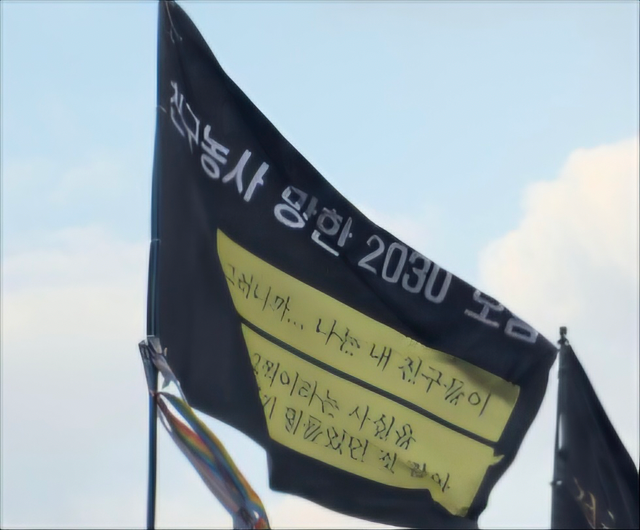 친구농사 망한 2030 모임
그러니까... 나는 내 친구들이
이라는 사실을
힘들었던 것 같아